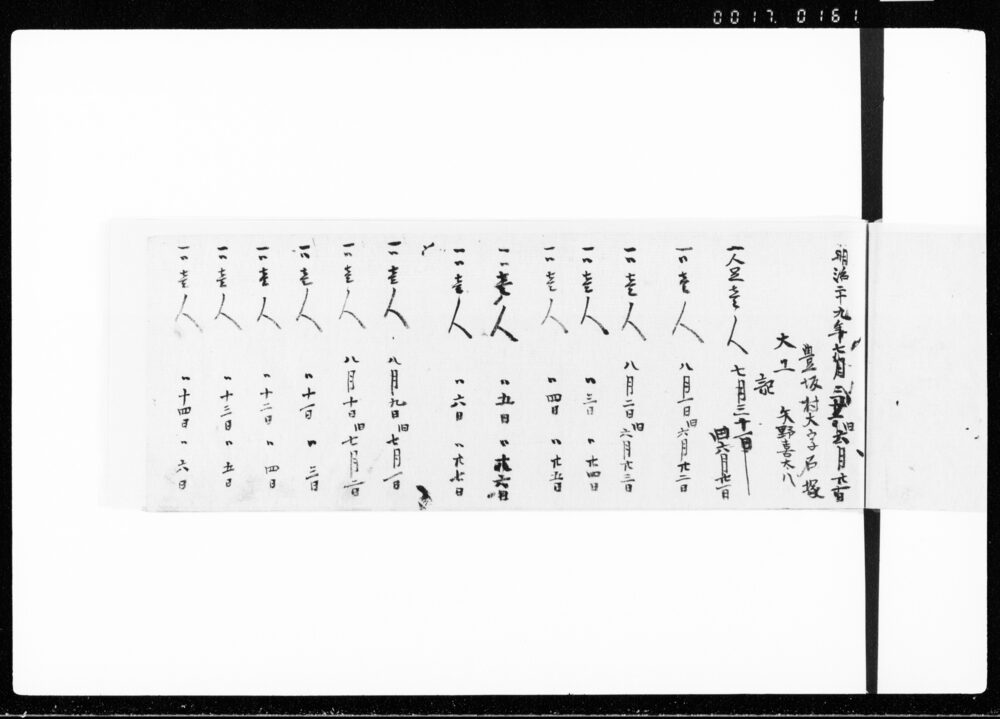 0017.0161
明治二十九年七月 旧六月廿一日
豊坂村大字石塚
大工 矢野喜太八
記
一人足壱人 七月三十一日 旧六月廿一日
一〃壱人 八月一日旧六月廿二日
一〃壱人 八月二日旧六月廿三日
一〃壱人 〃三日〃廿四日
一〃壱人 〃四日〃廿五日
一〃壱人 〃五日〃廿六日
一〃壱人 〃六日〃廿七日
一〃壱人 八月九日旧七月一日
一〃壱人 八月十日旧七月二日
一〃壱人 〃十一日〃三日
一〃壱人 〃十二日〃四日
一〃壱人 〃十三日〃五日
一〃壱人 〃十四日〃六日